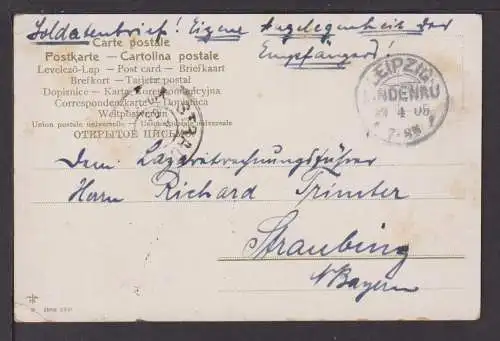 Soldatenbrief! Eigene Angelegenheit des
Empfängers!
Carte postale
Postkarte — Cartolina postale
Levelező-Lap — Post card — Briefkaart
Brefkort — Tarjeta postal
Dopisnice — Karta Korespondencyjna
Correspondenzkarte — Dopisnica
Weltpostverein
Union postale universelle — Unione postale universale
ОТКРЫТОЕ ПИСЬМО
STRA
LEIPZIG
LINDENAU
4 05
7-8N
Dem Lazaretrechnungsführer
Herrn Richard Trimter
Straubing
Bayern